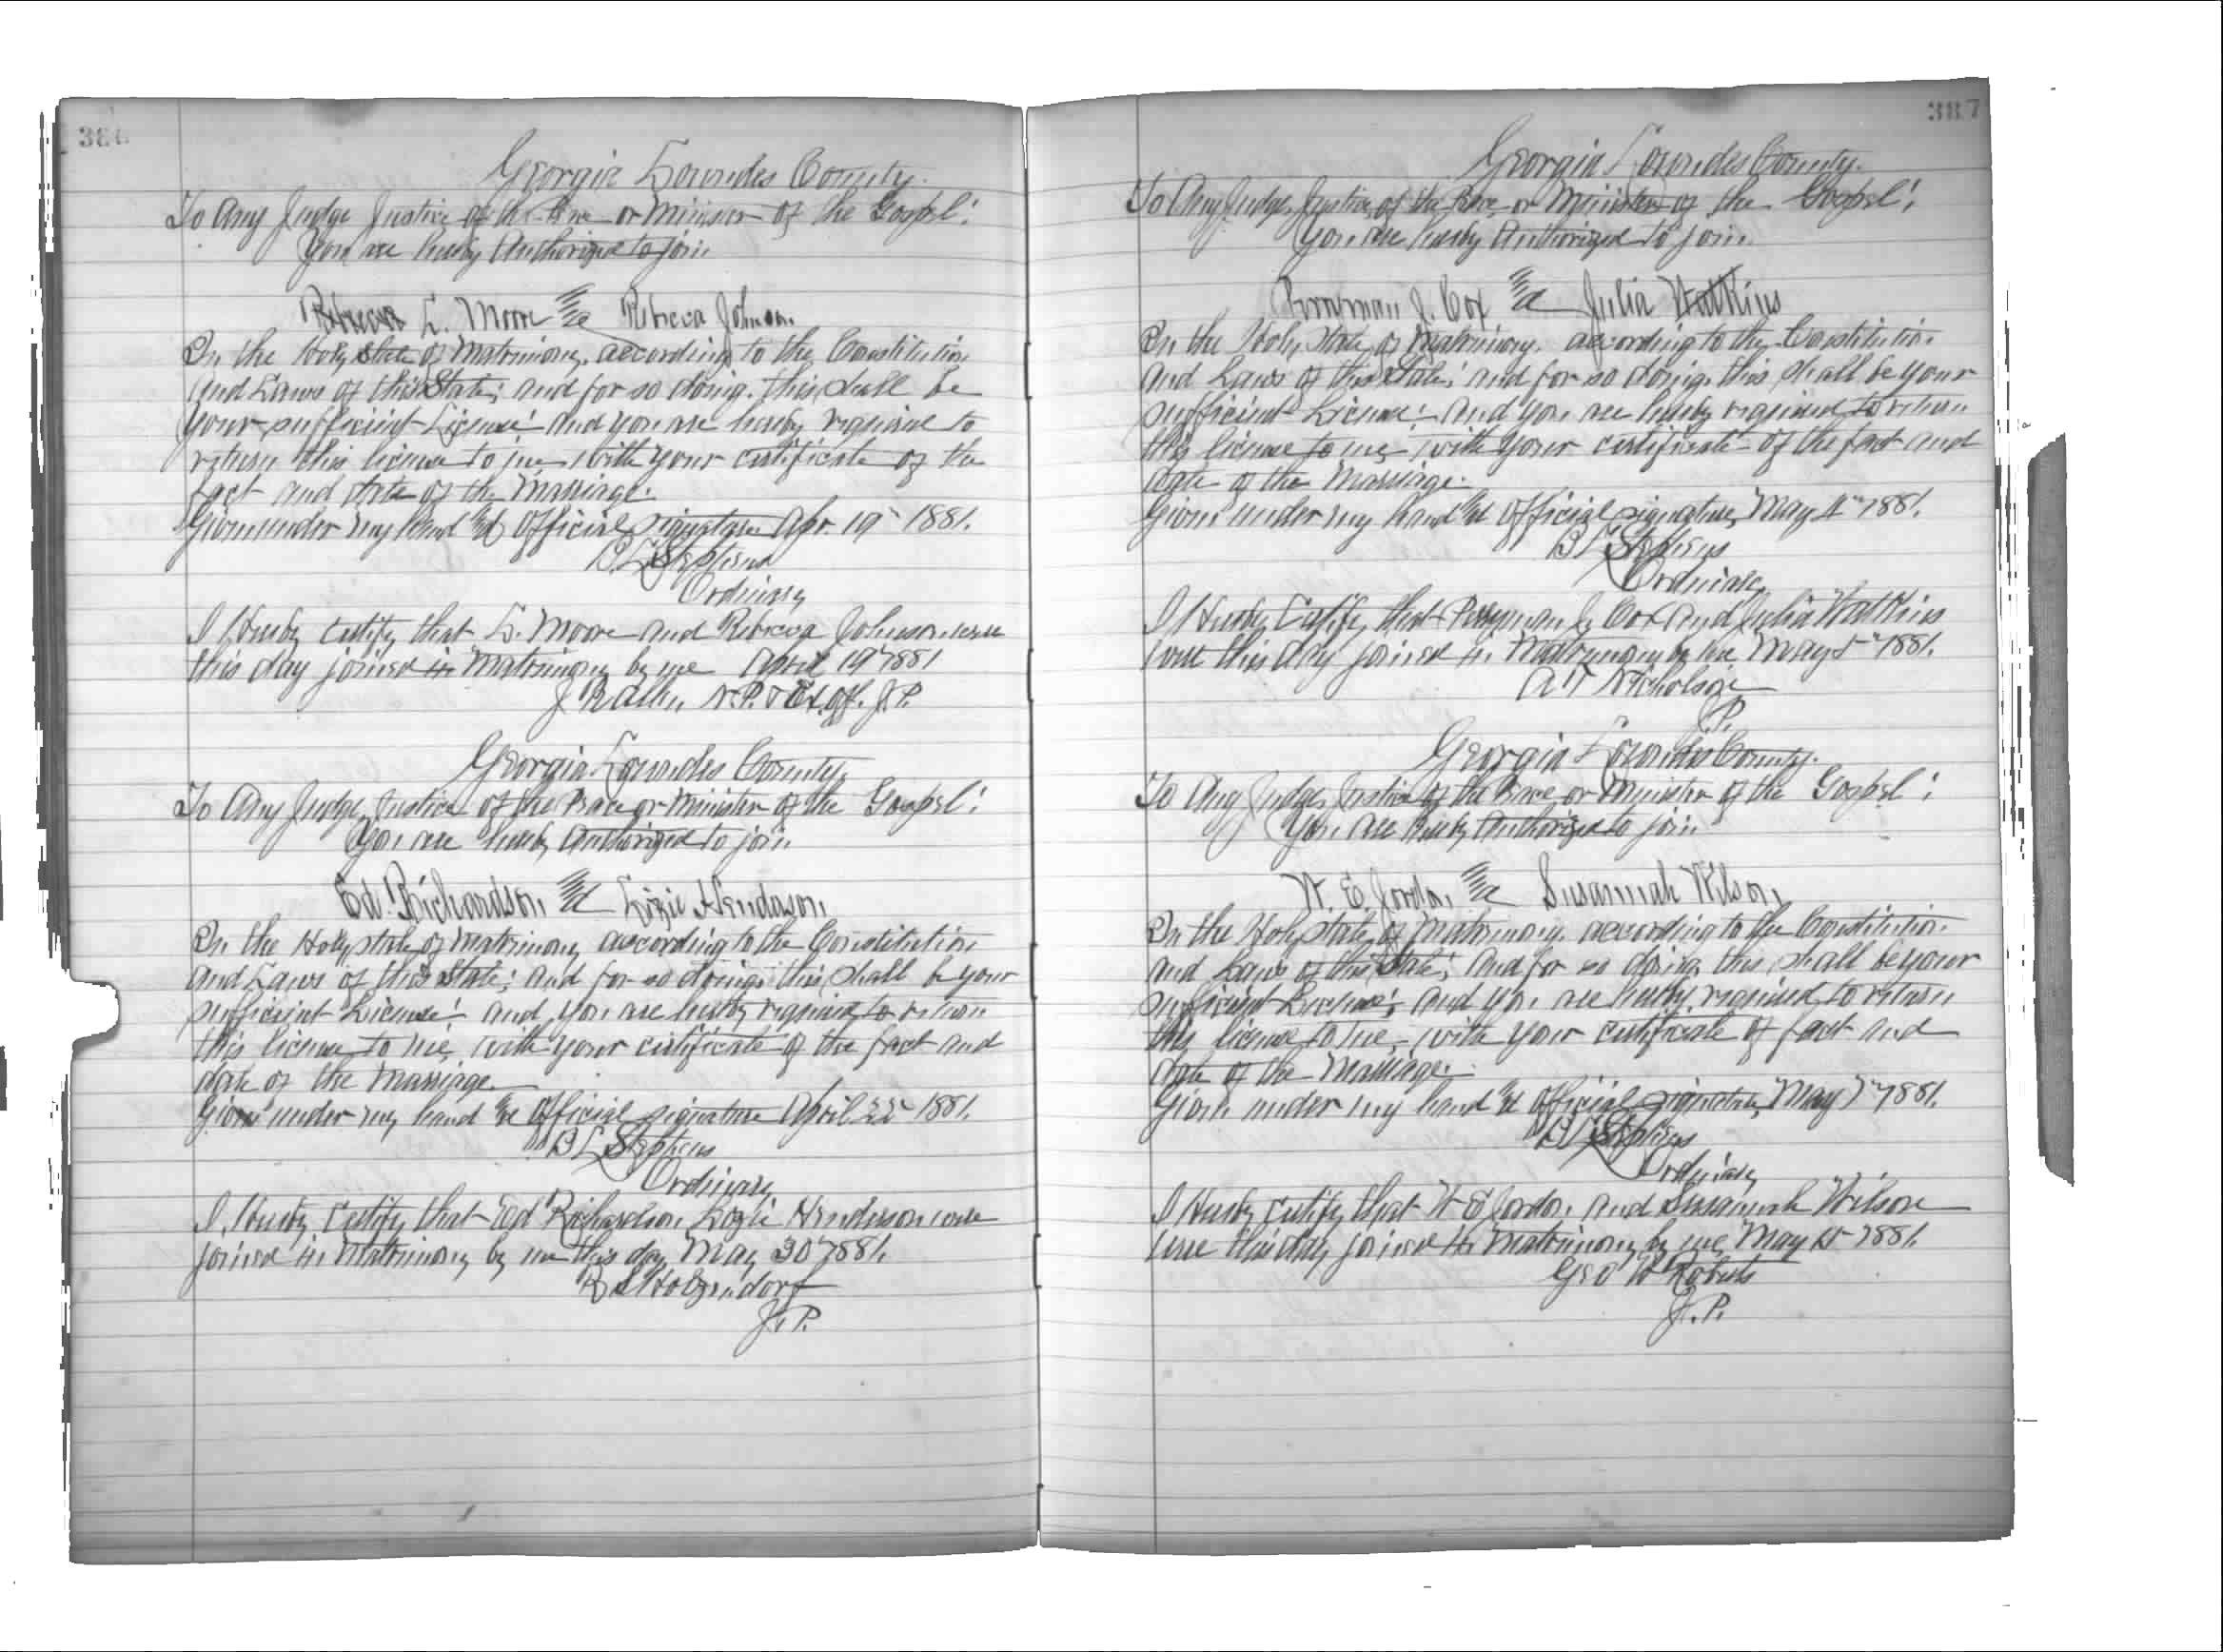 386
Georgia Lowndes County.
To Any Judge Justice of the Peace or Minister of the Gospel:
You are hereby Authorized to join
L. Moore and Rebecca Johnson
In the Holy State of Matrimony. according to the Constitution
and Laws of this State; and for so doing. this shall be
your sufficient License: and you are hereby required to
return this license to me with your certificate of the
fact and date of the Marriage.
Given under my hand and Official signature Apr. 19th 1881.
B L Stephens
Ordinary
I Hereby Certify that L. Moore and Rebecca Johnson were
this day joined in Matrimony by me April 19th 1881
N.P. & Ex. off. J.P.
Georgia Lowndes County
To Any Judge, Justice of the Peace or Minister of the Gospel:
You are hereby Authorized to join
Ed. Richardson and Lizzie Henderson
In the Holy state of Matrimony according to the Constitution
and Laws of this State; and for so doing this shall be your
sufficient License: and you are hereby required to return
this license to me, with your certificate of the fact and
date of the Marriage.
Given under my hand and Official signature April 22nd 1881.
B L Stephens
Ordinary
I, Hereby Certify that Ed Richardson Lizzie Henderson were
joined in Matrimony by me this day May 30th 1881.
Holzendorf
J. P.
387
Georgia Lowndes County.
To Any Judge, Justice of the Peace or Minister of the Gospel:
You are hereby Authorized to join
Perryman J. Cox and Julia Watkins
In the Holy State of Matrimony. according to the Constitution
and Laws of this State; and for so doing, this shall be your
sufficient License: and you are hereby required to return
this license to me, with your certificate of the fact and
date of the Marriage.
Given under my hand and Official signature, May 4th 1881.
B L Stephens
Ordinary
I Hereby Certify that Perryman J. Cox and Julia Watkins
were this day joined in Matrimony by me May 5th 1881.
Nicholson
J.P.
Georgia Lowndes County.
To Any Judge, Justice of the Peace or Minister of the Gospel:
You are hereby Authorized to join
W. E. Jordan and Susannah Wilson
In the Holy state of Matrimony. according to the Constitution
and Laws of this State; and for so doing, this shall be your
sufficient License; and you are hereby required to return
this license to me, with your certificate of fact and
date of the Marriage.
Given under my hand and Official signature, May 1881.
B L Stephens
Ordinary
I Hereby certify that W E Jordan and Susannah Wilson
were this day joined in Matrimony by me, May 1881.
Geo W Roberts
J. P.